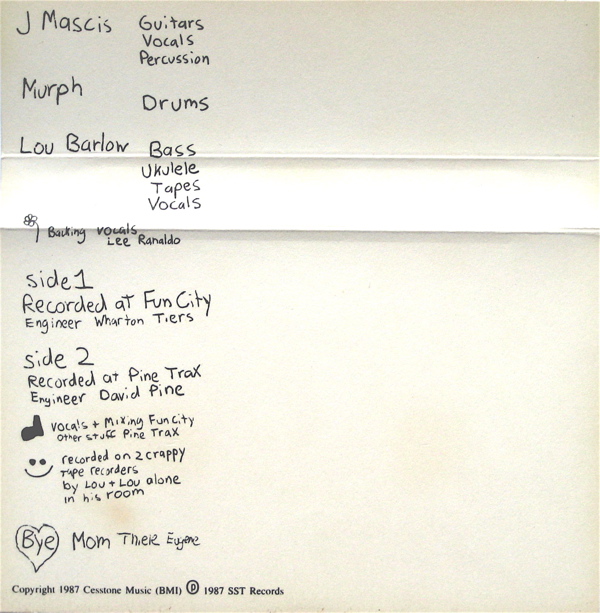 J Mascis Guitars
Vocals
Percussion
Murph Drums
Lou Barlow Bass
Ukulele
Tapes
Vocals
Backing vocals
Lee Ranaldo
side 1
Recorded at Fun City
Engineer Wharton Tiers
side 2
Recorded at Pine Trax
Engineer David Pine
vocals + Mixing Fun City
other stuff Pine Trax
recorded on 2 crappy
Tape recorders
by Lou + Lou alone
in his room
Bye Mom Thiek Eugene
Copyright 1987 Cesstone Music (BMI) ℗ 1987 SST Records